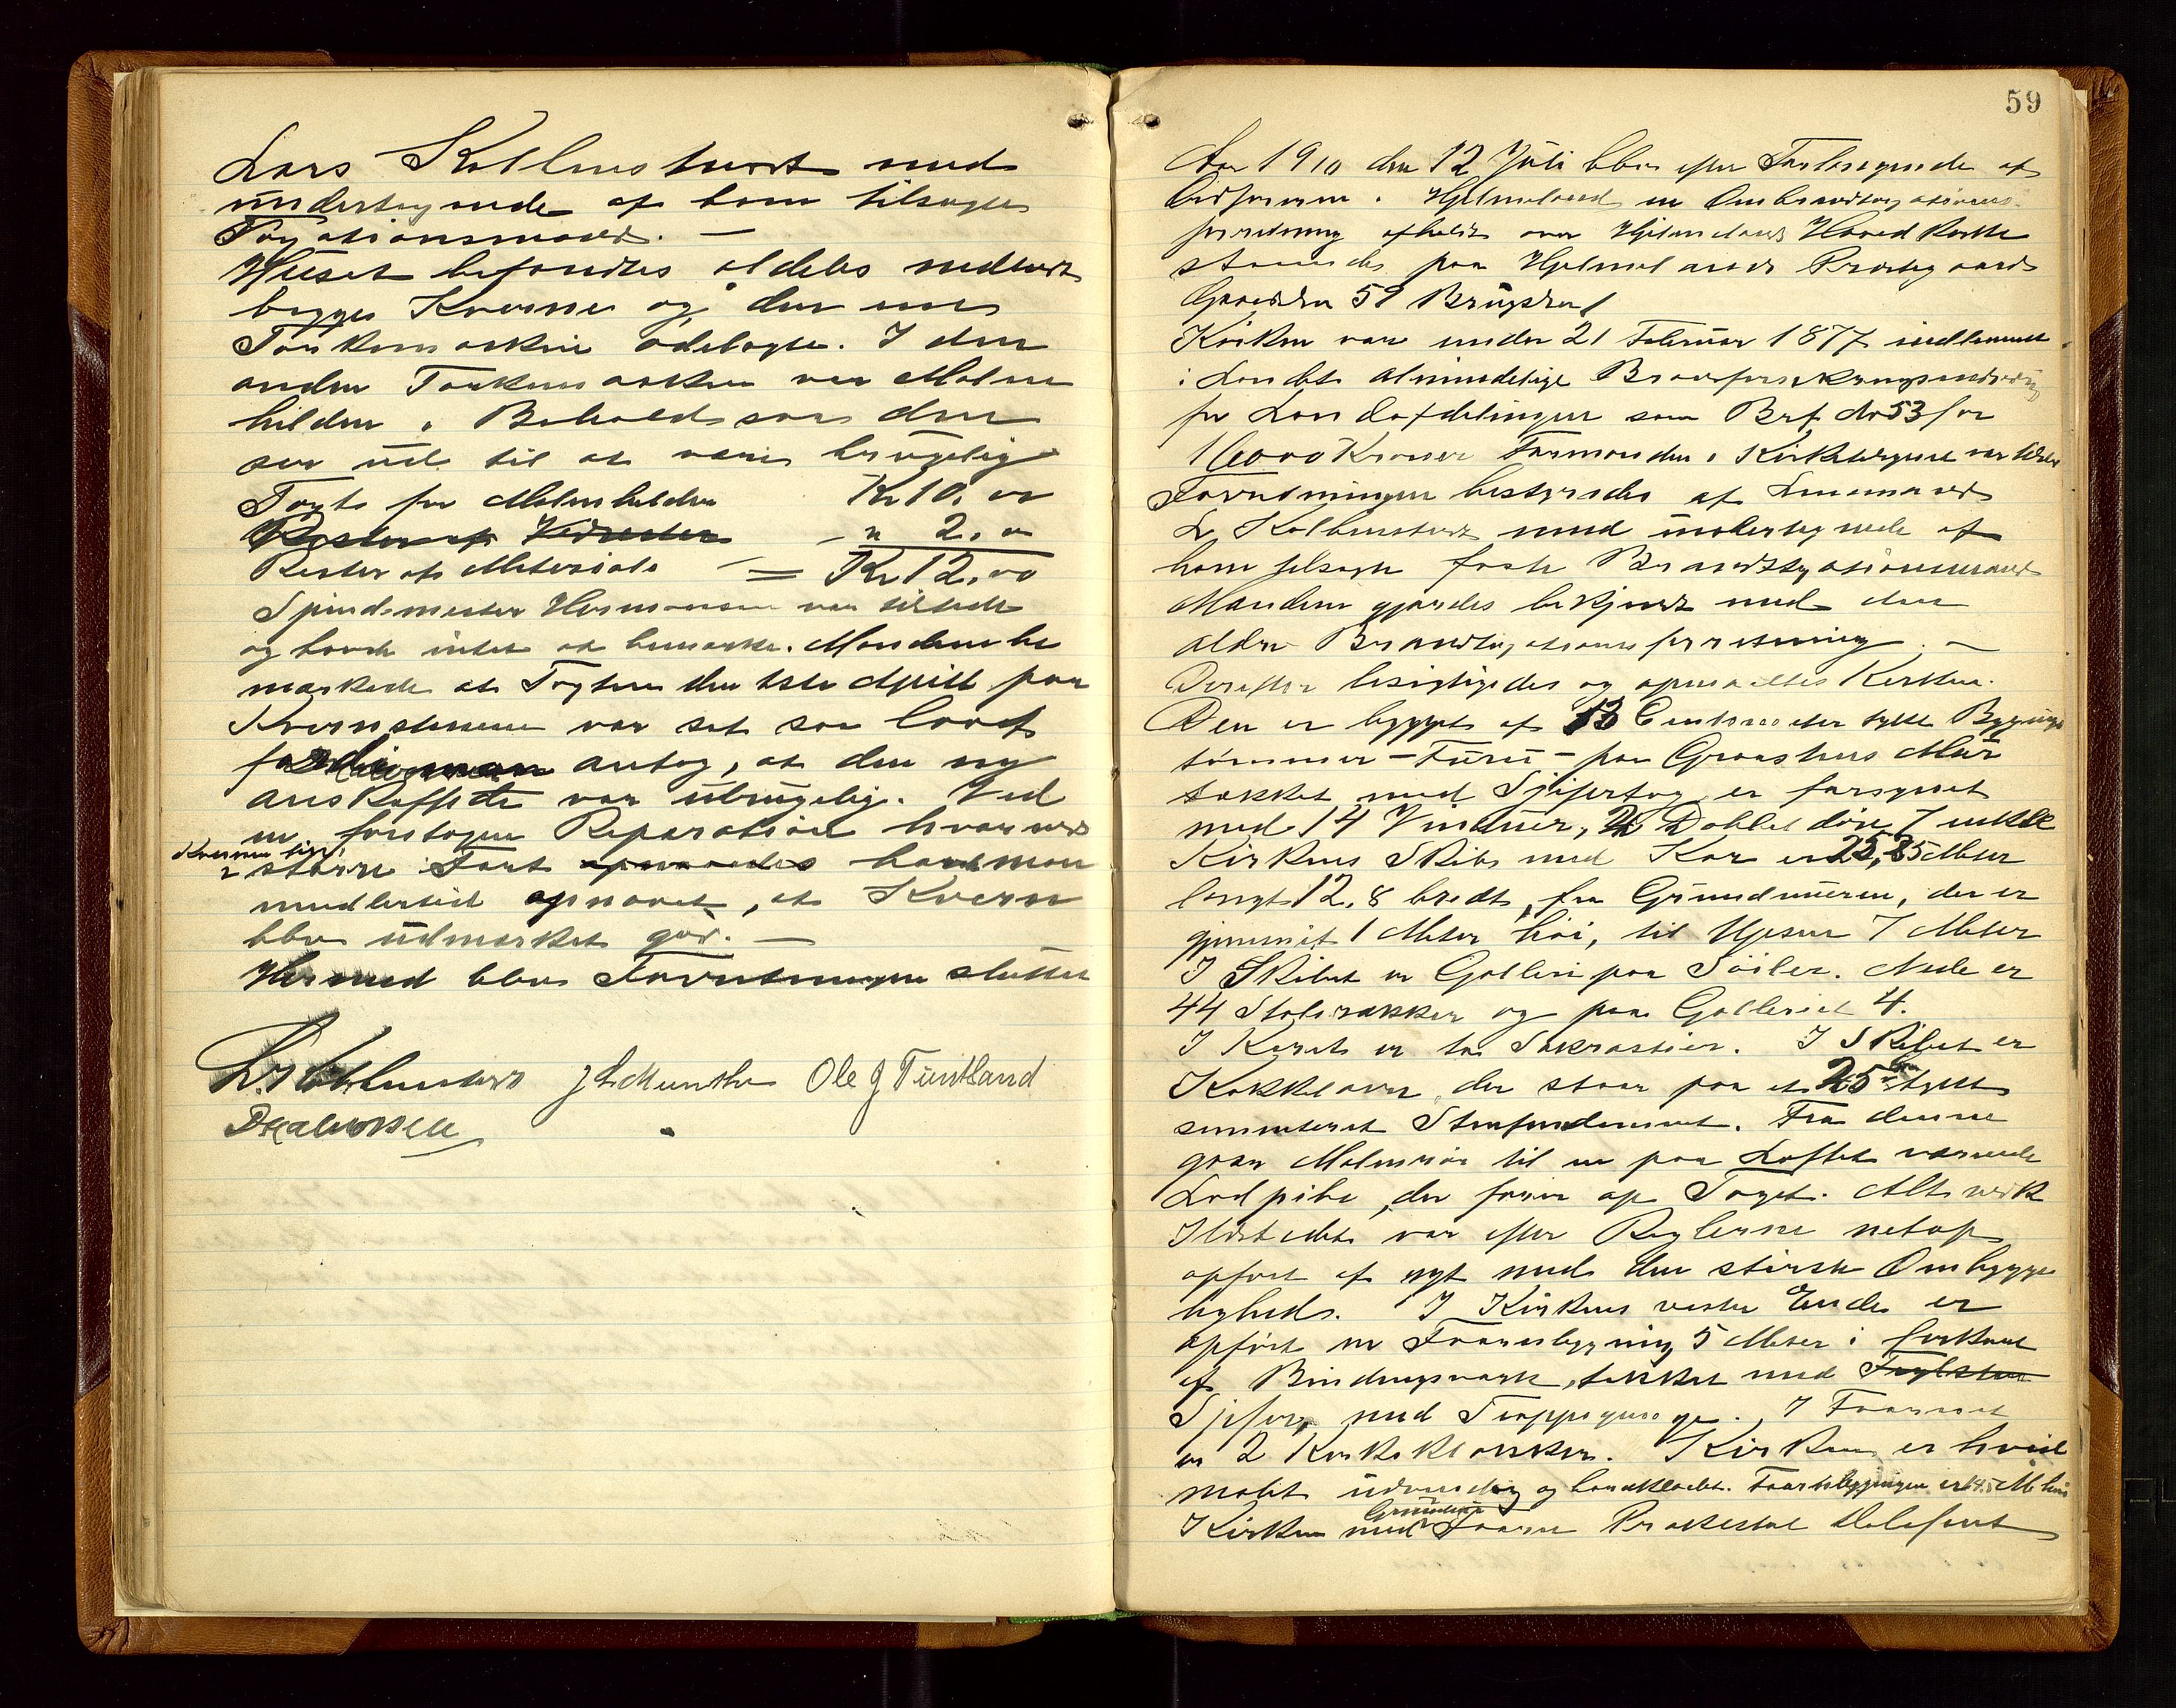 Lars Kolbenstvedt med
undertegnede af ham tilsagte
Taxationsmænd. —
Huset befandtes aldeles nedbrændt
begge Kverne og den ene
Tørkemaskin ødelagte. I den
anden Tørkemaskin var Malme
hilden i Behold saa den
saa ud til at være brugelig
Taxt for Malmhelden Kr 10,00
Rester af — " 2,00
Rester af Materiale = Kr 12,00
Hermansen var tilstede
og havde intet at bemærke. Mændene be
mærkede at Taxten den 1ste April paa
Kvernstenene var sat saa lavt
fordi man antog, at den ny
anskaffede var ubrugelig. Ved
en foretagen Reparation hvorved
Kvernen fik
større Fart opnaaedes havde man
imidlertid opnaaet, at Kvern
blev udmærket god. —
Hermed blev Forretningen sluttet
L. Kolbenstvedt J L Munthe Ole J Tuntland
59
Aar 1910 den 12 Juli blev efter Forlangende af
Ordføreren i Hjelmeland en Ombrandtaxations
forretning afholdt over Hjelmelands Hovedkirke
staaende paa Hjelmelands Prestegaard
Gaardsn 59 Brugsn 1
Kirken var under 21 Februar 1877 indlemmet
i Landets almindelige Brandforsikringsindretning
for Landafdelingen som Brf. No 53 for
16000 Kroner Formanden i Kirketilsynet var tilstede
Forretningen bestyredes af Lensmand
L Kolbenstvedt med undertegnede af
ham tilsagte faste Brandtaxationsmænd
Mændene gjordes bekjendt med den
ældre Brandtaxationsforretning. —
Derefter besigtigedes og opmaaltes Kirken.
Den er bygget af 13 Centimeter tykke Bygnings
tømmer – Furu – paa Graastens Mur
tækket med Skifertag, er forsynet
med 14 Vinduer, 2 Dobbel døre 7 enkle
Kirkens Skib med Kor er 25,85 Meter
langt 12,8 bredt, fra Grundmuren, der er
gjennemsnit 1 Meter høi, til Upsen 7 Meter
I Skibet er Galleri paa Søiler. Nede er
44 Stolerækker og paa Galleriet 4.
I Koret er to Sakrastier. I Skibet er
Kakkelovn, der staar paa et 25 cm tykt
sementeret Stenfundament. Fra denne
gaar Malmrør til en paa Loftet værende
Lodpibe, der fører op Taget. Alt ved
Ildstedet var efter Reglerne netop
opført af nyt med den største Ombygge
lighed. I Kirkens vestre Ende er
opført en Taarnbygning 5 Meter i firkant
af Bindingsværk, tækket med Teglsten
Skifer, med Trappegange. I Taarnet
er 2 Kirkeklokker. Kirken er hvid
malet udvendig og bordklædt. Taarnbygningen er 14.5 M høi
Grundmur
Kirken med Taarn Prækestol Døbefont